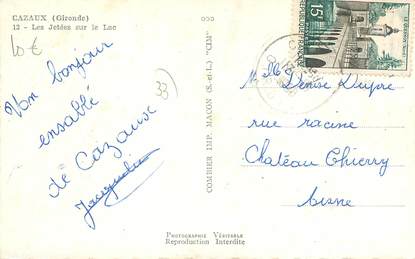 CAZAUX (Gironde)
12 - Les Jetées sur le Lac
10 €
33
bonjour
ensablé
de Cazaux
Jacqueline
COMBIER IMP. MACON (S.-et-L.) "CIM"
PHOTOGRAPHIE VÉRITABLE
Reproduction Interdite
15F
Denise Dupré
rue racine
Chateau Thierry
aisne